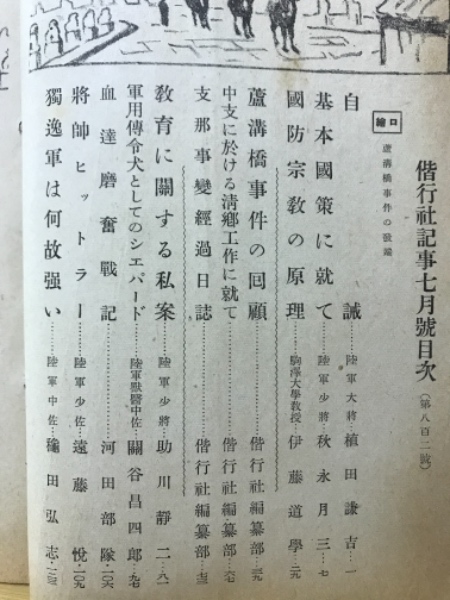 偕行社記事七月號目次（第八百二號）
口繪
蘆溝橋事件の發端
自誡……陸軍大將 植田謙吉…一
基本國策に就て……陸軍少將 秋永月三…七
國防宗教の原理……駒澤大學教授 伊藤道學…二九
蘆溝橋事件の回顧……偕行社編纂部…三九
中支に於ける清鄕工作に就て……偕行社編纂部…六七
支那事變經過日誌……偕行社編纂部…七三
教育に關する私案……陸軍少將 助川靜二…八一
軍用傳令犬としてのシエパード……陸軍獸醫中佐 關谷昌四郎…九七
血達磨奮戰記……河田部隊…一〇六
將帥ヒットラー……陸軍少佐 遠藤悅…一〇九
獨逸軍は何故强い……陸軍中佐 種田弘志…一二三